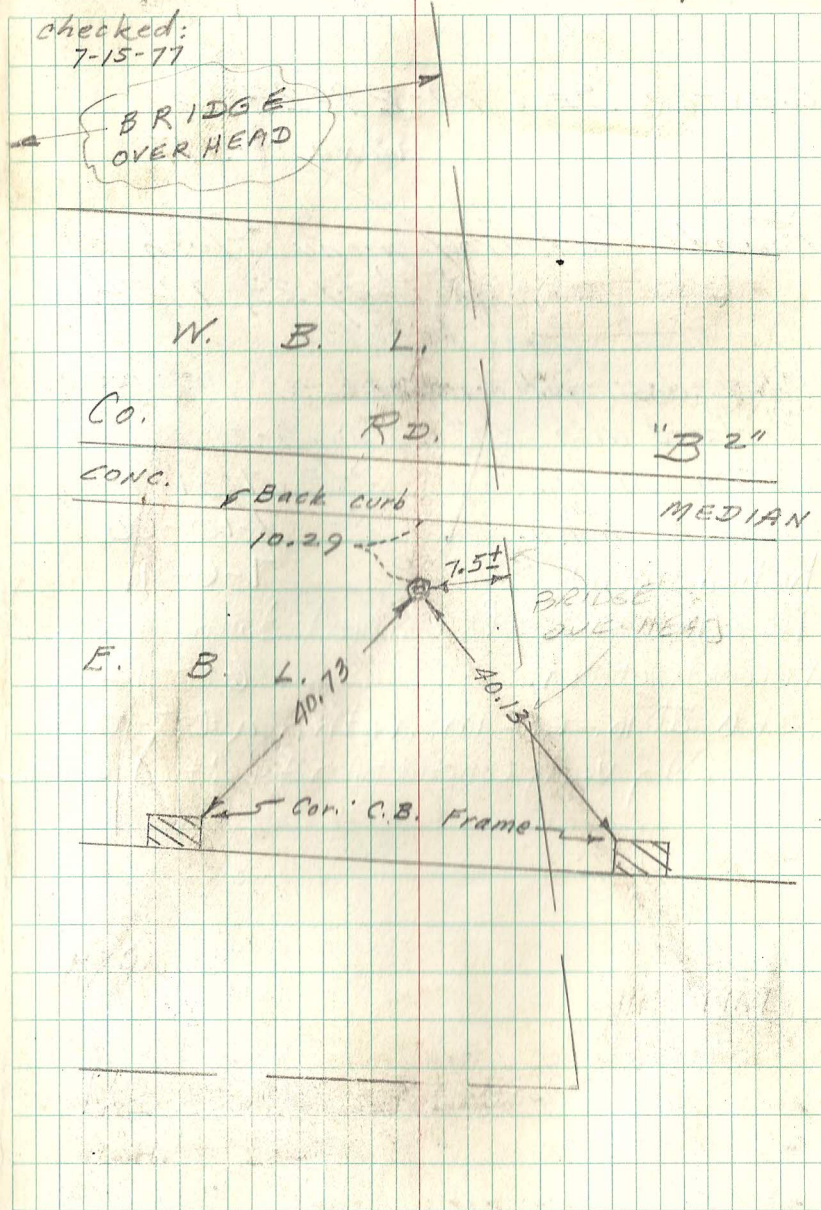 checked:
7-15-77
BRIDGE
OVER HEAD
W. B. L.
Co. RD. "B 2"
CONC. MEDIAN
Back curb
10.29
7.5±
BRIDGE
OVE-HEAD
E. B. L.
40.73
40.13
Cor. C.B. Frame